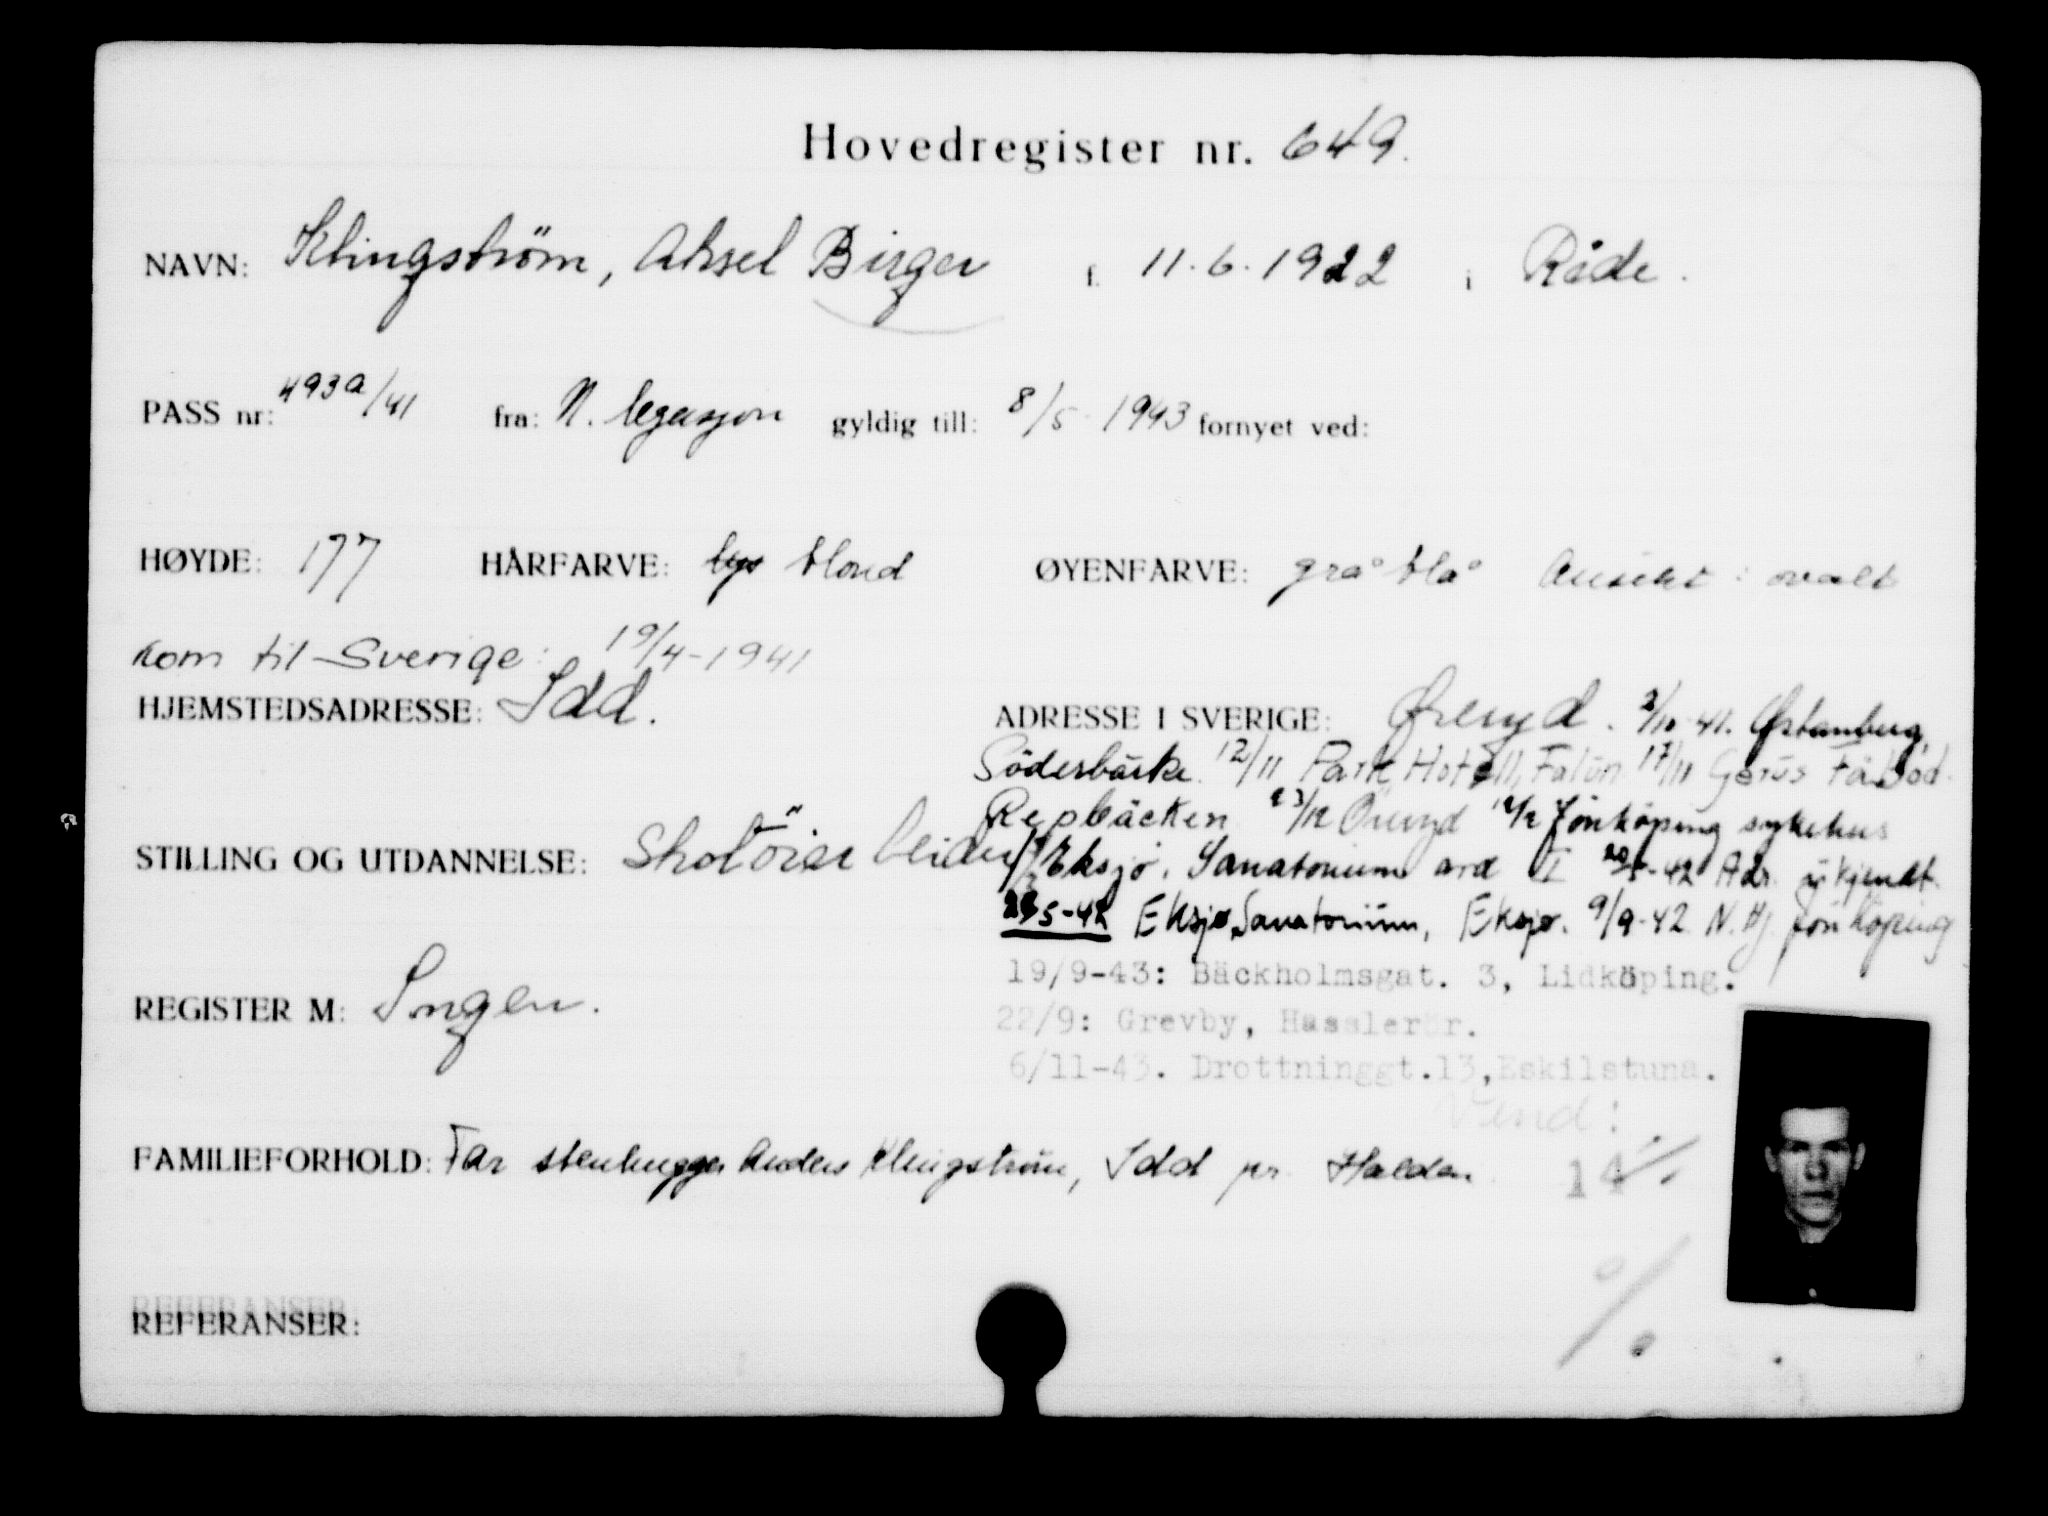 Hovedregister nr. 649.
NAVN: Klingström, Aksel Birger f. 11.6.1922 i Råde.
PASS nr: 493a/41 fra: N. legasjon gyldig till: 8/5-1943 fornyet ved:
HØYDE: 177 HÅRFARVE: lys blond ØYENFARVE: grå blå Ansikt: ovalt
Kom til Sverige: 19/4-1941
HJEMSTEDSADRESSE: Idd.
ADRESSE I SVERIGE: Øreryd. 2/10-41. Østanberg,
Söderbärke 12/11 Park Hotell, Falun 17/11 Fäbod
Repbäcken 23/12 Öreryd Jönköping sykehus
Eksjö. Sanatorium avd I -42 Adr. ukjendt.
5-42 Eksjø Sanatorium, Eksjø. 9/9-42 N. Hj. Jönköping
19/9-43: Bäckholmsgat. 3, Lidköping.
22/9: Grevby, Hasslerör.
6/11-43. Drottninggt.13, Eskilstuna.
Vend:
STILLING OG UTDANNELSE: Skotöiarbeider
REGISTER M: Ingen.
FAMILIEFORHOLD: Far stenhugger Anders Klingström, Idd pr. Halden
14
REFERANSER: